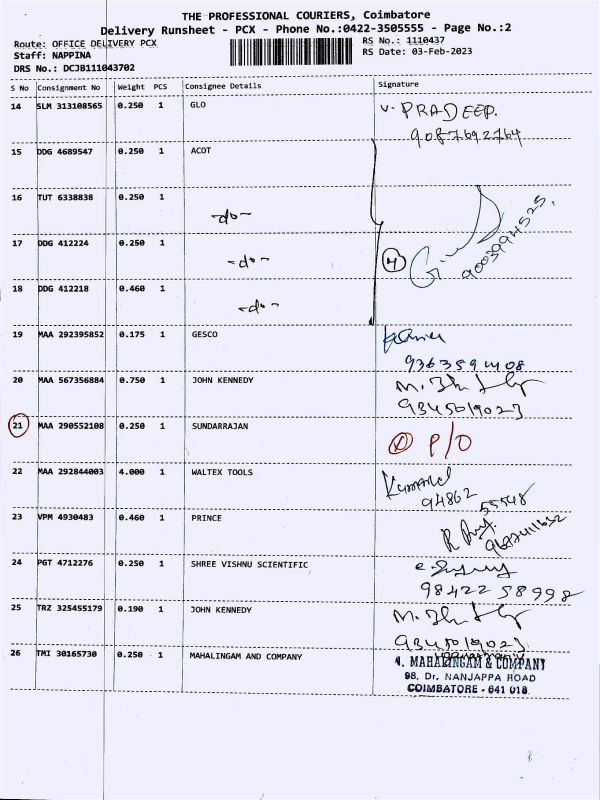 THE PROFESSIONAL COURIERS, Coimbatore
Delivery Runsheet - PCX - Phone No.:0422-3505555 - Page No.:2
Route: OFFICE DELIVERY PCX RS No.: 1110437
Staff: NAPPINA RS Date: 03-Feb-2023
DRS No.: DCJB111043702
S No Consignment No Weight PCS Consignee Details Signature
14 SLM 313108565 0.250 1 GLO V. PRADEEP.
9087692764
15 DDG 4689547 0.250 1 ACOT
16 TUT 6338838 0.250 1 -do-
17 DDG 412224 0.250 1 -do- 4 9003994525,
18 DDG 412218 0.460 1 -do-
19 MAA 292395852 0.175 1 GESCO
9363591408
20 MAA 567356884 0.750 1 JOHN KENNEDY
9345019023
21 MAA 290552108 0.250 1 SUNDARRAJAN P/O
22 MAA 292844003 4.000 1 WALTEX TOOLS
94862 55548
23 VPM 4930483 0.460 1 PRINCE
24 PGT 4712276 0.250 1 SHREE VISHNU SCIENTIFIC
98422 58998
25 TRZ 325455179 0.190 1 JOHN KENNEDY
9345019023
26 TMI 30165730 0.250 1 MAHALINGAM AND COMPANY MAHALINGAM & COMPANY
98, Dr. NANJAPPA ROAD
COIMBATORE - 641 018.